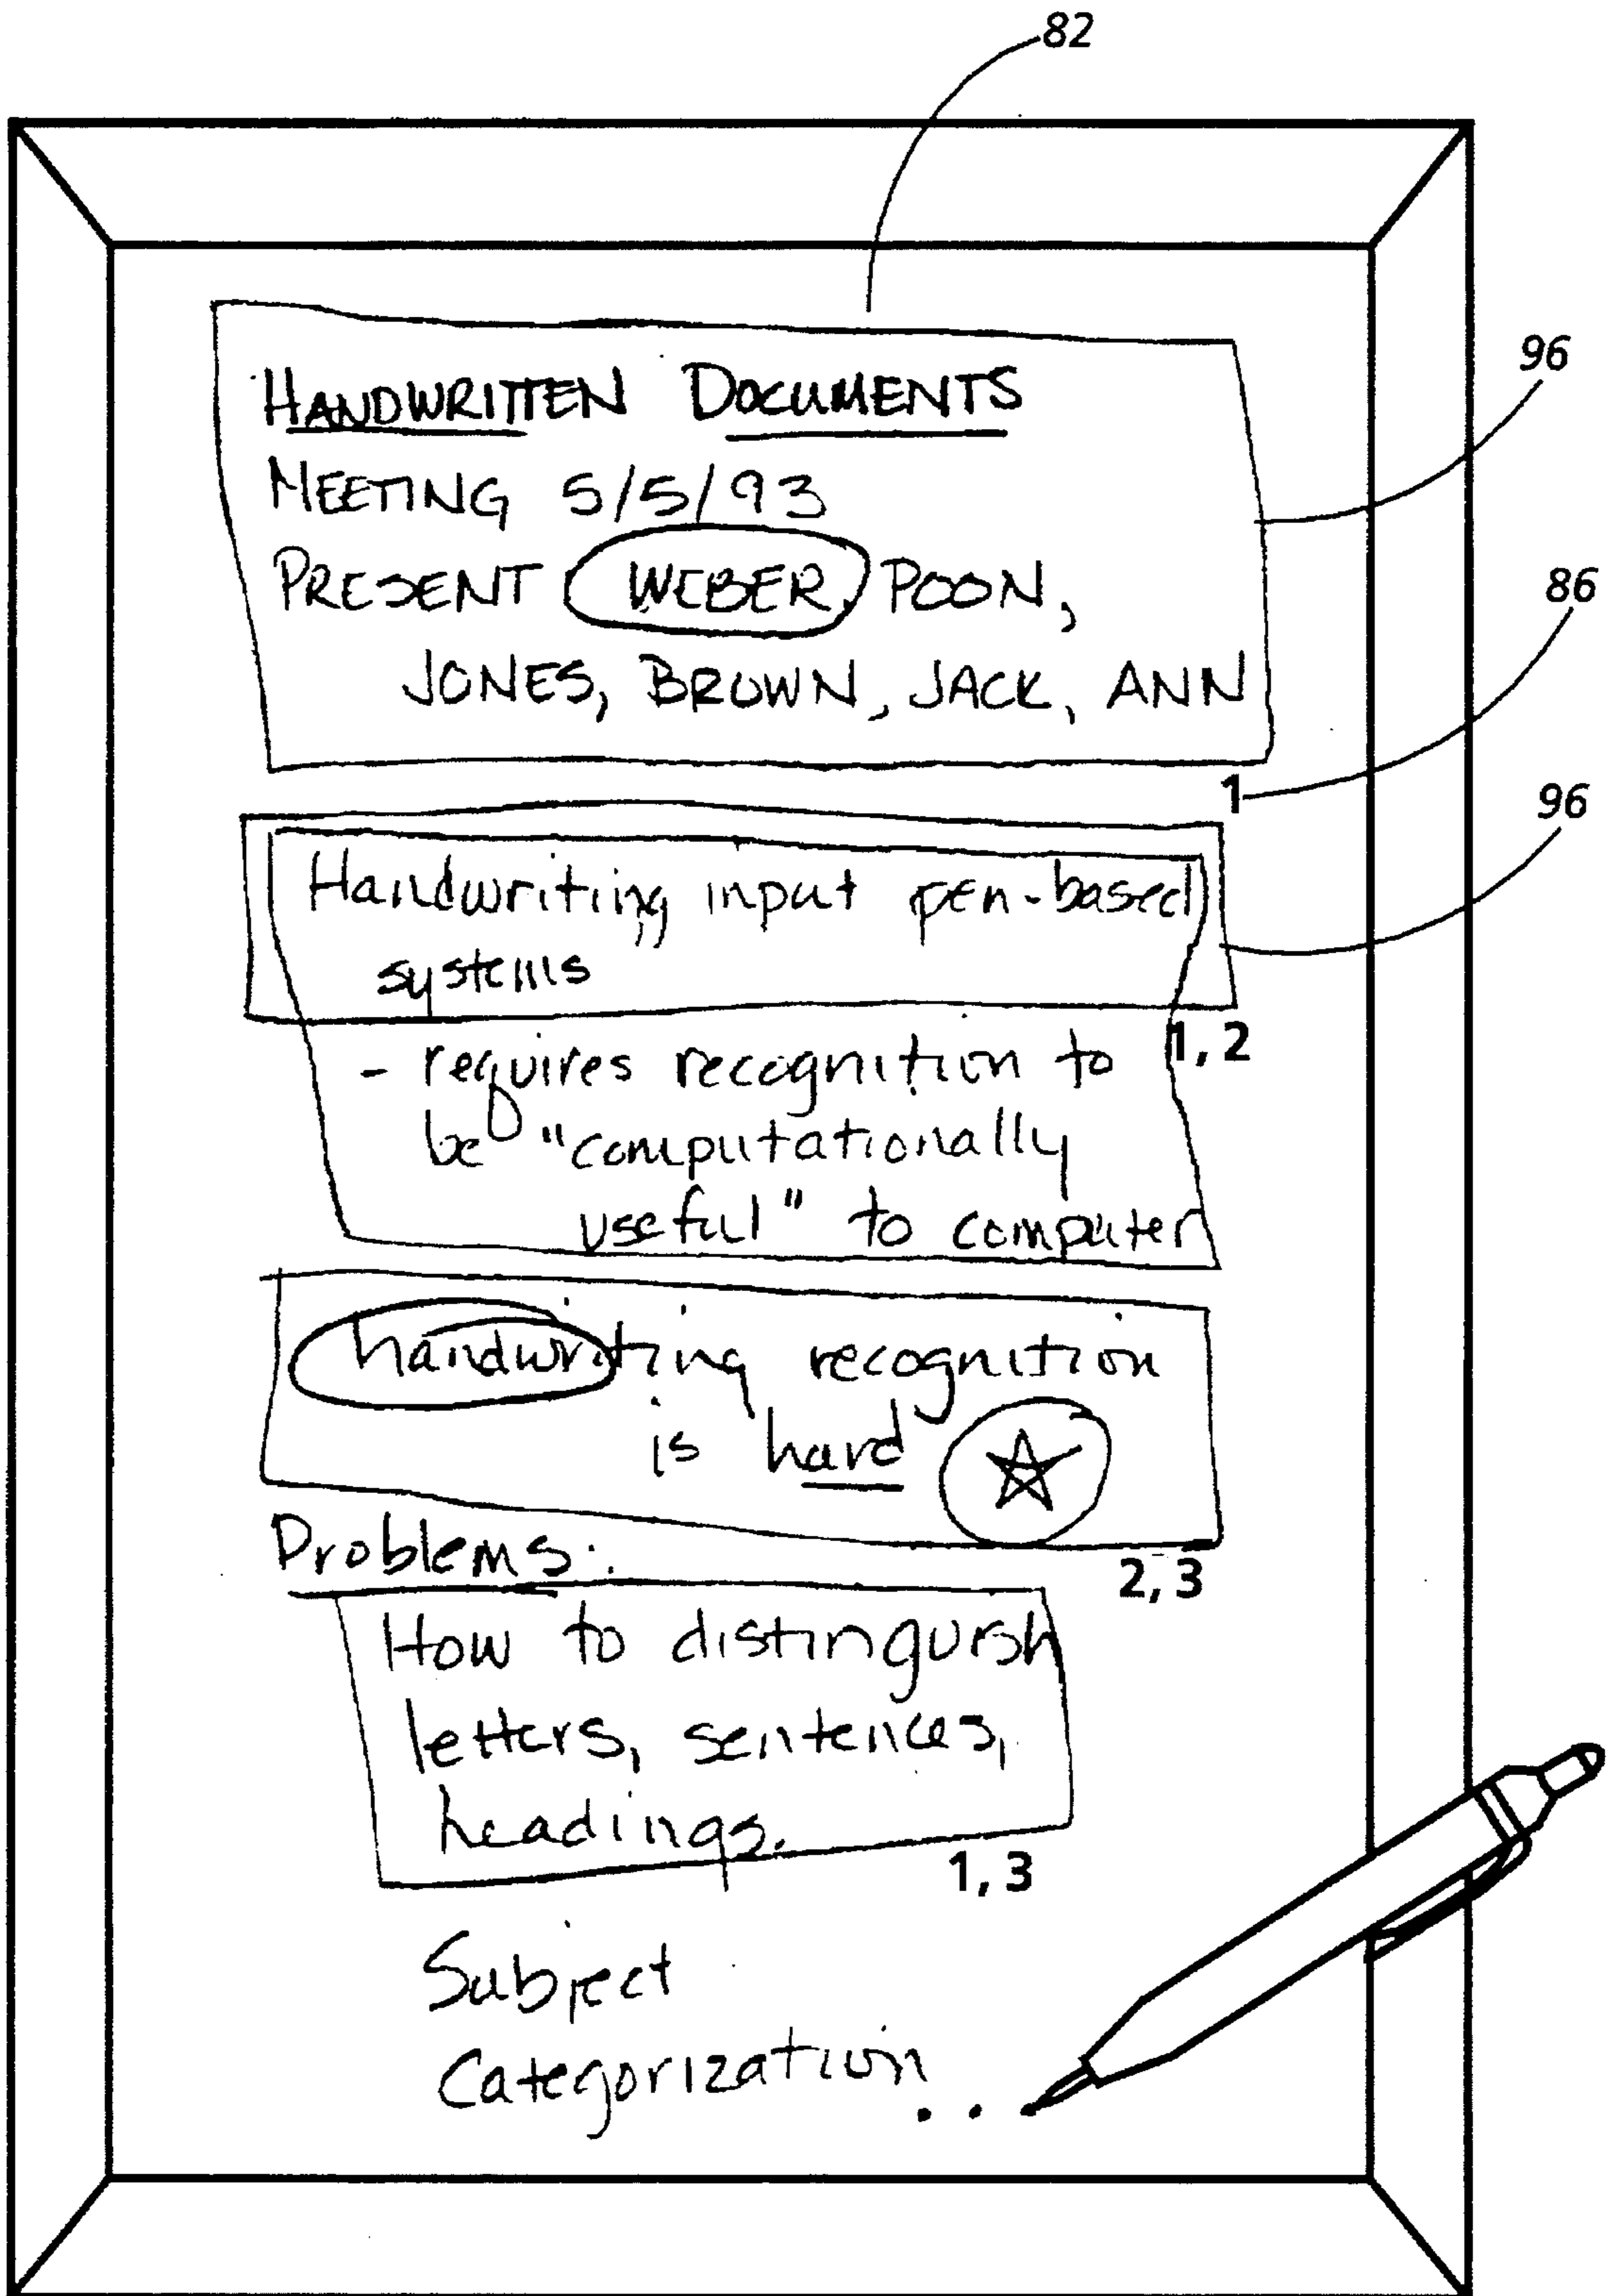 82
HANDWRITTEN DOCUMENTS
96
MEETING 5/5/93
PRESENT WEBER, POON,
86
JONES, BROWN, JACK, ANN
1
96
Handwriting input pen-based
systems
1, 2
- requires recognition to
be "computationally
useful" to computer
handwriting recognition
is hard
Problems:
2, 3
How to distinguish
letters, sentences,
headings.
1, 3
Subject
Categorization
...